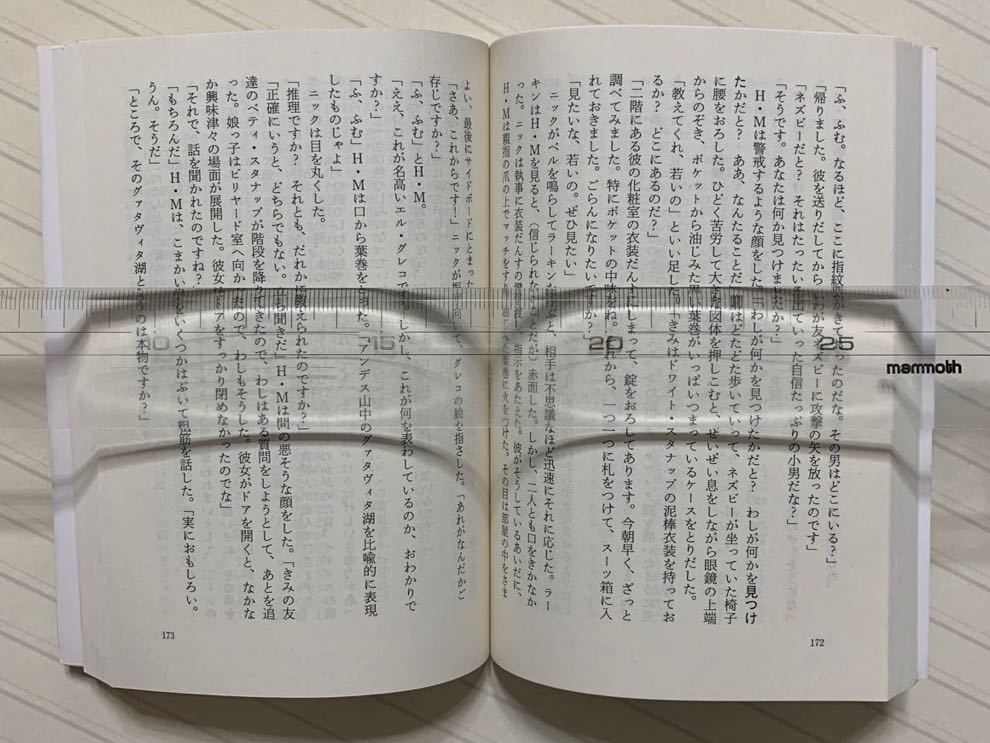 「ふ、ふむ。なるほど、ここに指紋がきて　ったのだな。その男はどこにいる?」
「帰りました。彼を送りだしてから、　が友ネズビーに攻撃の矢を放ったのです」
「ネズビーだと? それはたったいま出ていった自信たっぷりの小男だな?」
「そうです。あなたは何か見つけましたか?」
H・Mは警戒するような顔をした。「わしが何かを見つけたかだと? わしが何かを見つけ
たかだと? ああ、なんたることだ　」　はどたどた歩いていって、ネズビーが坐っていた椅子
に腰をおろした。ひどく苦労して大きな図体を押しこむと、ぜいぜい息をしながら眼鏡の上端
からのぞき、ポケットから油じみた　い葉巻がいっぱいつまっているケースをとりだした。
「教えてくれ、若いの」といい足した。「きみはドワイト・スタナップの泥棒衣装を持ってお
るか? どこにあるのだ?」
「二階にある彼の化粧室の衣装だんすにしまって、錠をおろしてあります。今朝早く、ざっと
調べてみました。特にポケットの中味をね。それから、一つ一つに札をつけて、スーツ箱に入
れておきました。ごらんになりたいですか?」
「見たいな、若いの。ぜひ見たい」
ニックがベルを鳴らしてラーキンを呼ぶと、相手は不思議なほど迅速にそれに応じた。ラー
キンはH・Mを見ると、(信じられないことだが)赤面した。しかし、二人とも口をきかなか
った。ニックは執事に衣装だんすの鍵を渡し、指示をあたえた。彼がそうしているあいだに、
H・Mは親指の爪の上でマッチをすり、油じみた葉巻に火をつけた。その目は部屋の中をさま
172
よい、最後にサイドボードにとまった。
「さあ、これからです!」ニックが振り向いて、グレコの絵を指さした。「あれがなんだかご
存じですか?」
「ふ、ふむ」とH・M。
「ええ、これが名高いエル・グレコです。しかし、これが何を表わしているのか、おわかりで
すか?」
「ふ、ふむ」H・Mは口から葉巻をとった。「アンデス山中のグァタヴィタ湖を比喩的に表現
したものじゃよ」
ニックは目を丸くした。
「推理ですか? それとも、だれかに教えられたのですか?」
「正確にいうと、どちらでもない。　ち聞きだ」H・Mは間の悪そうな顔をした。「きみの友
達のベティ・スタナップが階段を降りてきたので、わしはある質問をしようとして、あとを追
った。娘っ子はビリヤード室へ向かったので、わしもそうした。彼女がドアを開くと、なかな
か興味津々の場面が展開した。彼女はドアをすっかり閉めなかったのでな」
「それで、話を聞かれたのですね?」
「もちろんだ」H・Mは、こまかい点をいくつかはぶいて粗筋を話した。「実におもしろい。
うん。そうだ」
「ところで、そのグァタヴィタ湖というのは本物ですか?」
173
10
15
20
25
mammoth